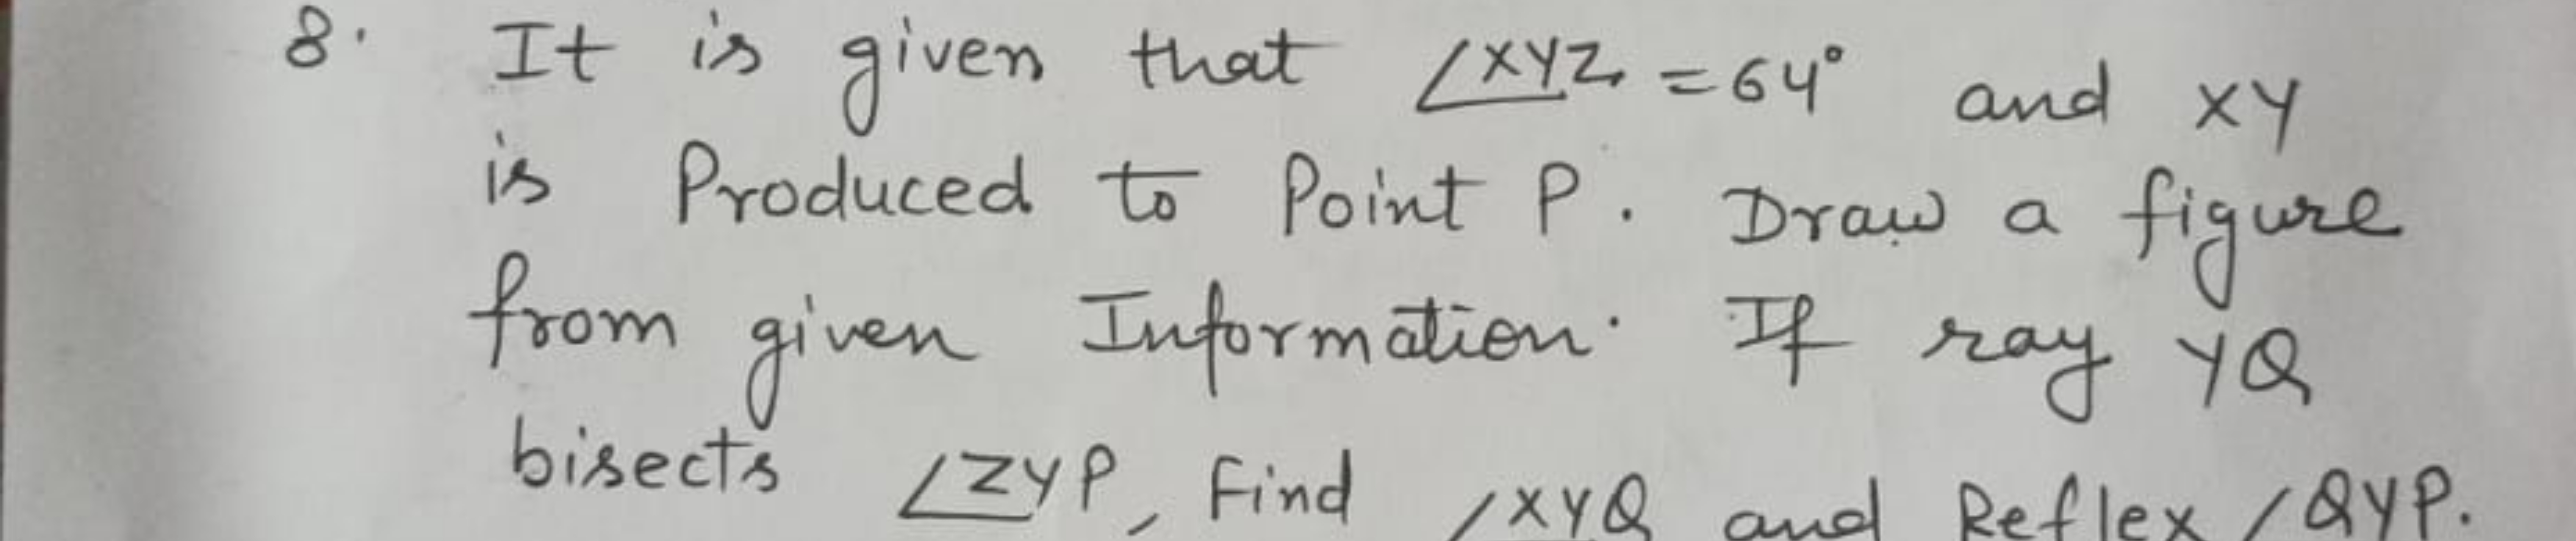 8. It is given that ∠XYZ = 64° and XY
is Produced to Point P. Draw a figure
from given Information. If ray YQ
bisects ∠ZYP, Find ∠XYQ and Reflex ∠QYP.